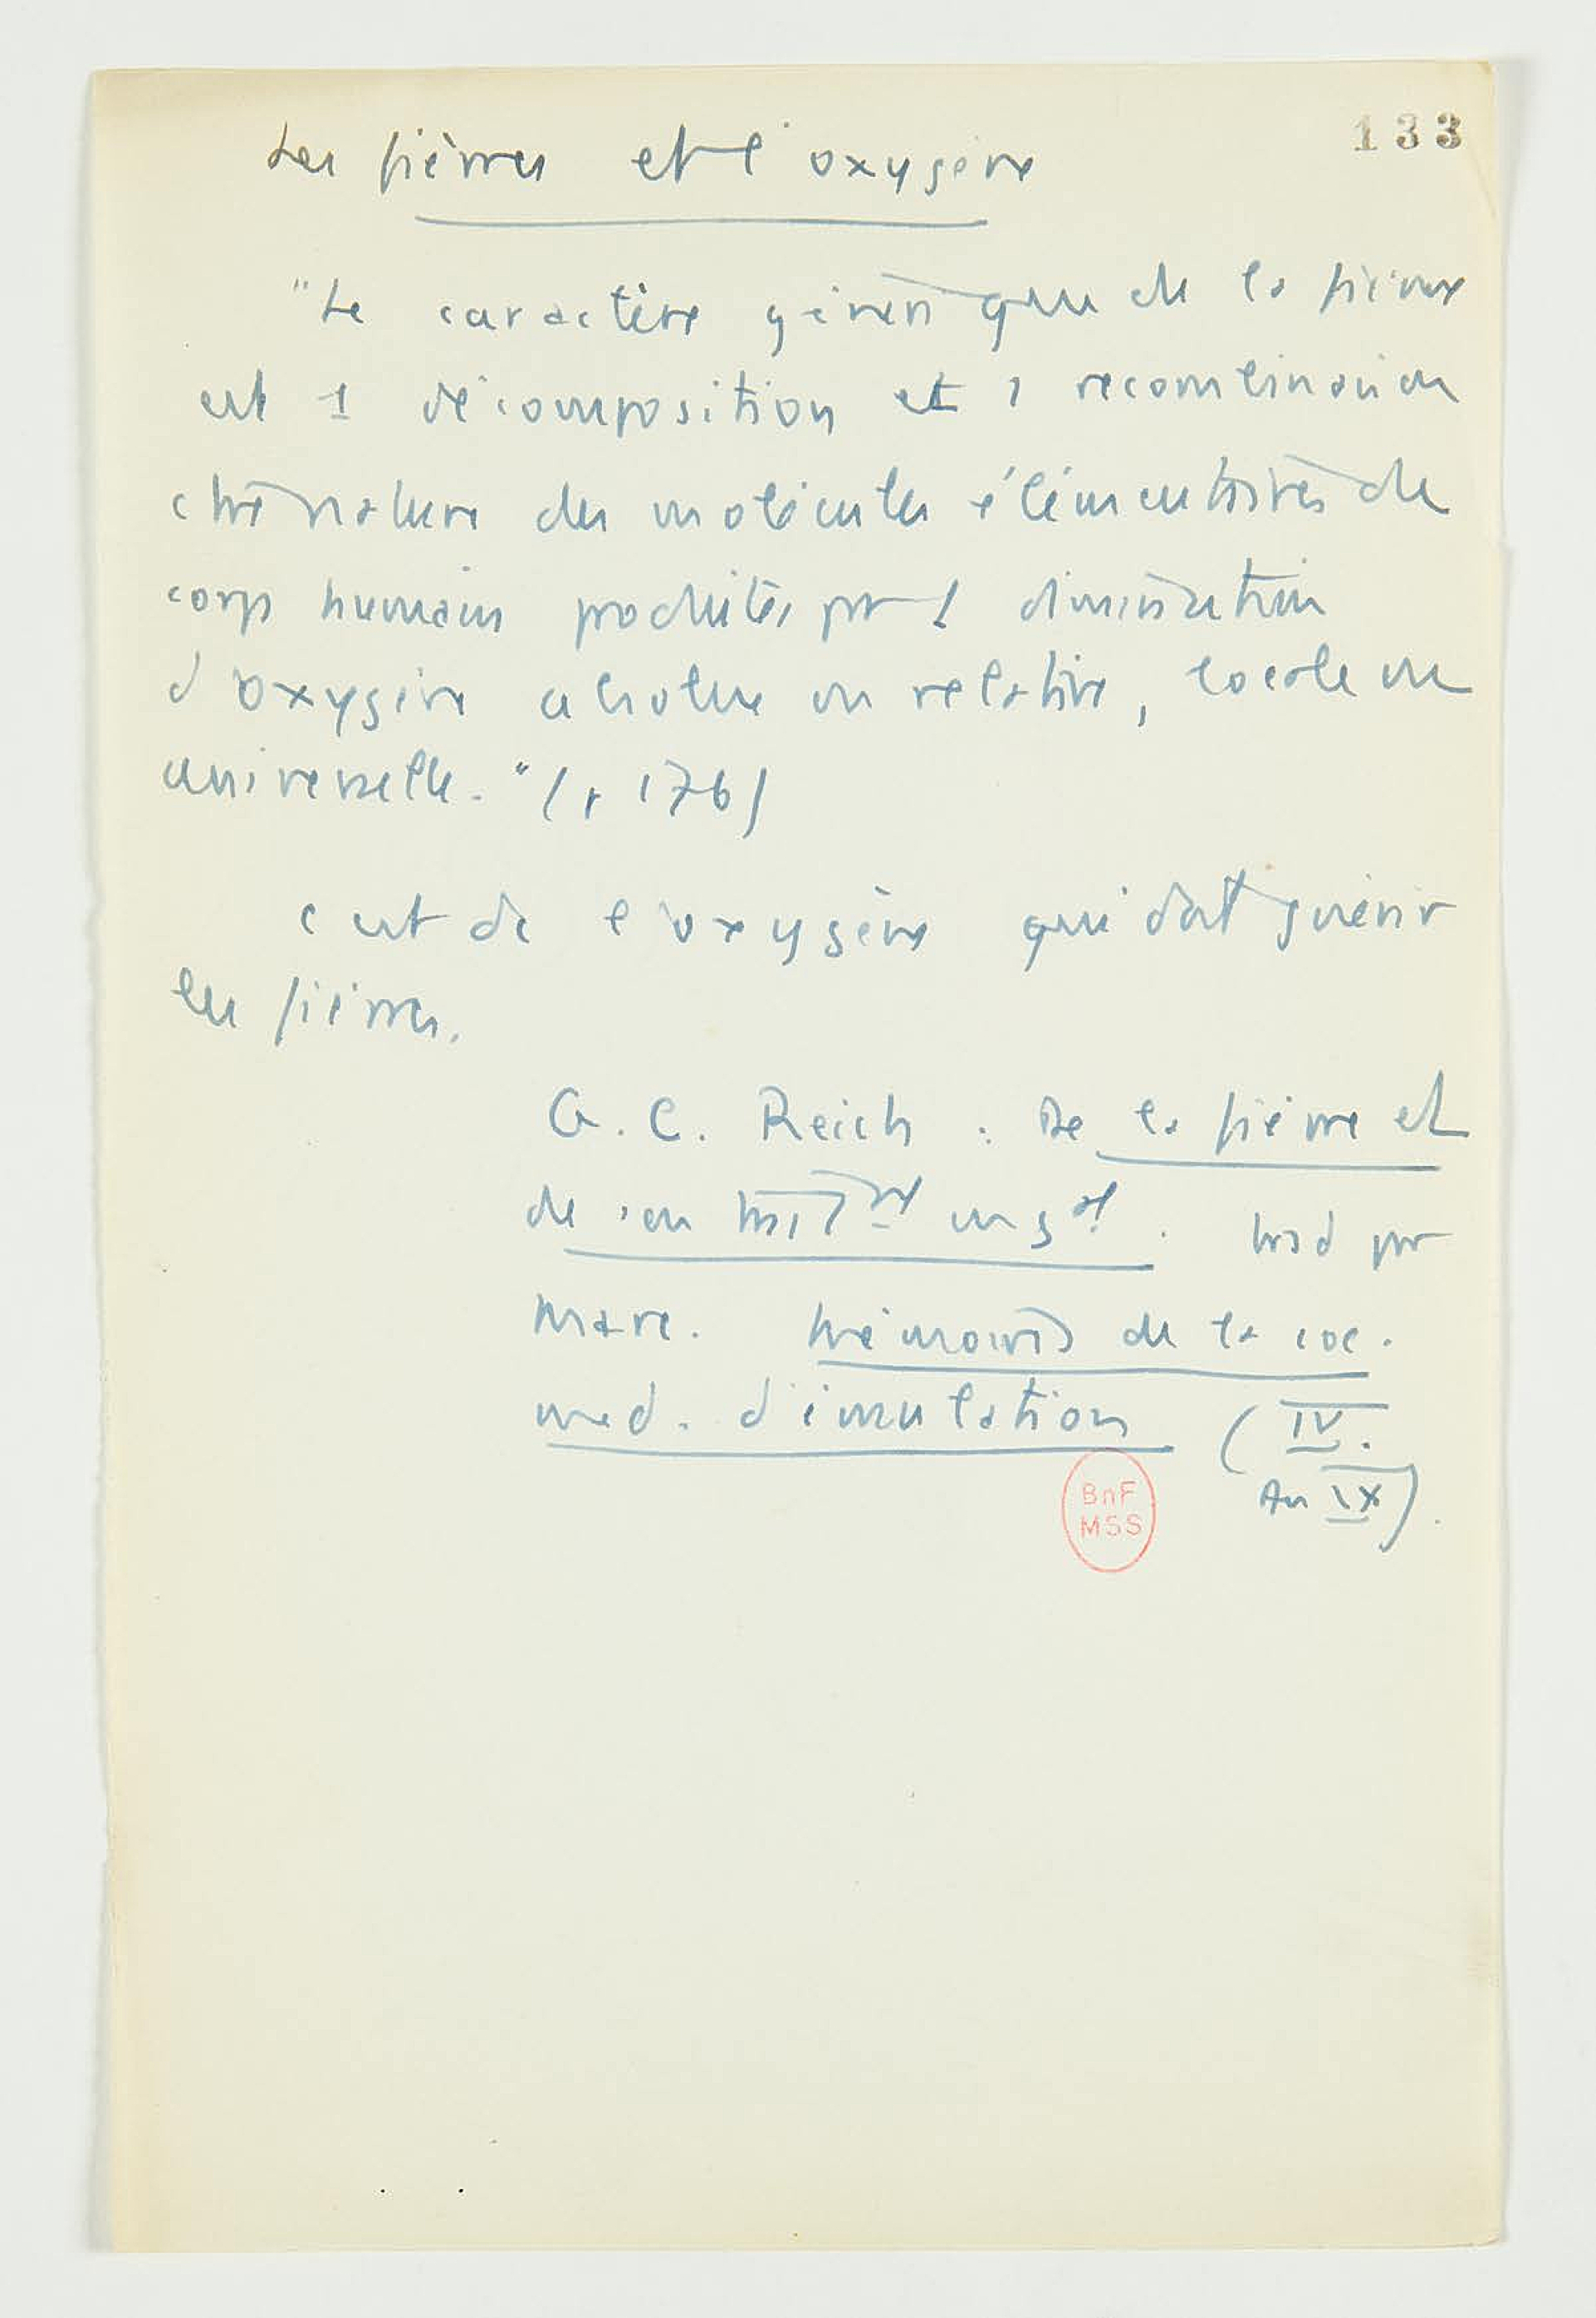 133
Les fièvres et l'oxygène
"Le caractère générique de la fièvre
est 1 décomposition et 1 recombinaison
contrenature des molécules élémentaires du
corps humain produites par 1 diminution
d'oxygène absolue ou relative, locale ou
universelle." (p 176)
c'est dc l'oxygène qui doit guérir
les fièvres.
G. C. Reich : De la fièvre et
de son trait^nt en g^al. trad par
Marc. Mémoires de la soc.
med. d'émulation (IV.
An IX).
BnF
MSS